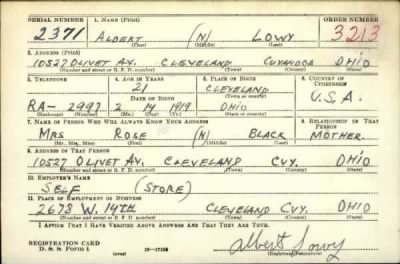 SERIAL NUMBER 1. NAME (Print) ORDER NUMBER
2371 ALBERT (N) LOWY 3213
(First) (Middle) (Last)
2. ADDRESS (Print)
10527 OLIVET AV. CLEVELAND CUYAHOGA OHIO
(Number and street or R. F. D. number) (Town) (County) (State)
3. TELEPHONE 4. AGE IN YEARS 5. PLACE OF BIRTH 6. COUNTRY OF CITIZENSHIP
21 CLEVELAND
DATE OF BIRTH (Town or county)
RA- 2997 2 14 1919 OHIO U.S.A.
(Exchange) (Number) (Mo.) (Day) (Yr.) (State or country)
7. NAME OF PERSON WHO WILL ALWAYS KNOW YOUR ADDRESS 8. RELATIONSHIP OF THAT PERSON
MRS ROSE (N) BLACK MOTHER
(Mr., Mrs., Miss) (First) (Middle) (Last)
9. ADDRESS OF THAT PERSON
10527 OLIVET AV. CLEVELAND CUY. OHIO
(Number and street or R. F. D. number) (Town) (County) (State)
10. EMPLOYER'S NAME
SELF (STORE)
11. PLACE OF EMPLOYMENT OR BUSINESS
2673 W. 14TH CLEVELAND CUY. OHIO
(Number and street or R. F. D. number) (Town) (County) (State)
I AFFIRM THAT I HAVE VERIFIED ABOVE ANSWERS AND THAT THEY ARE TRUE.
REGISTRATION CARD
D. S. S. Form 1 (over) Albert Lowy
(Registrant's signature)